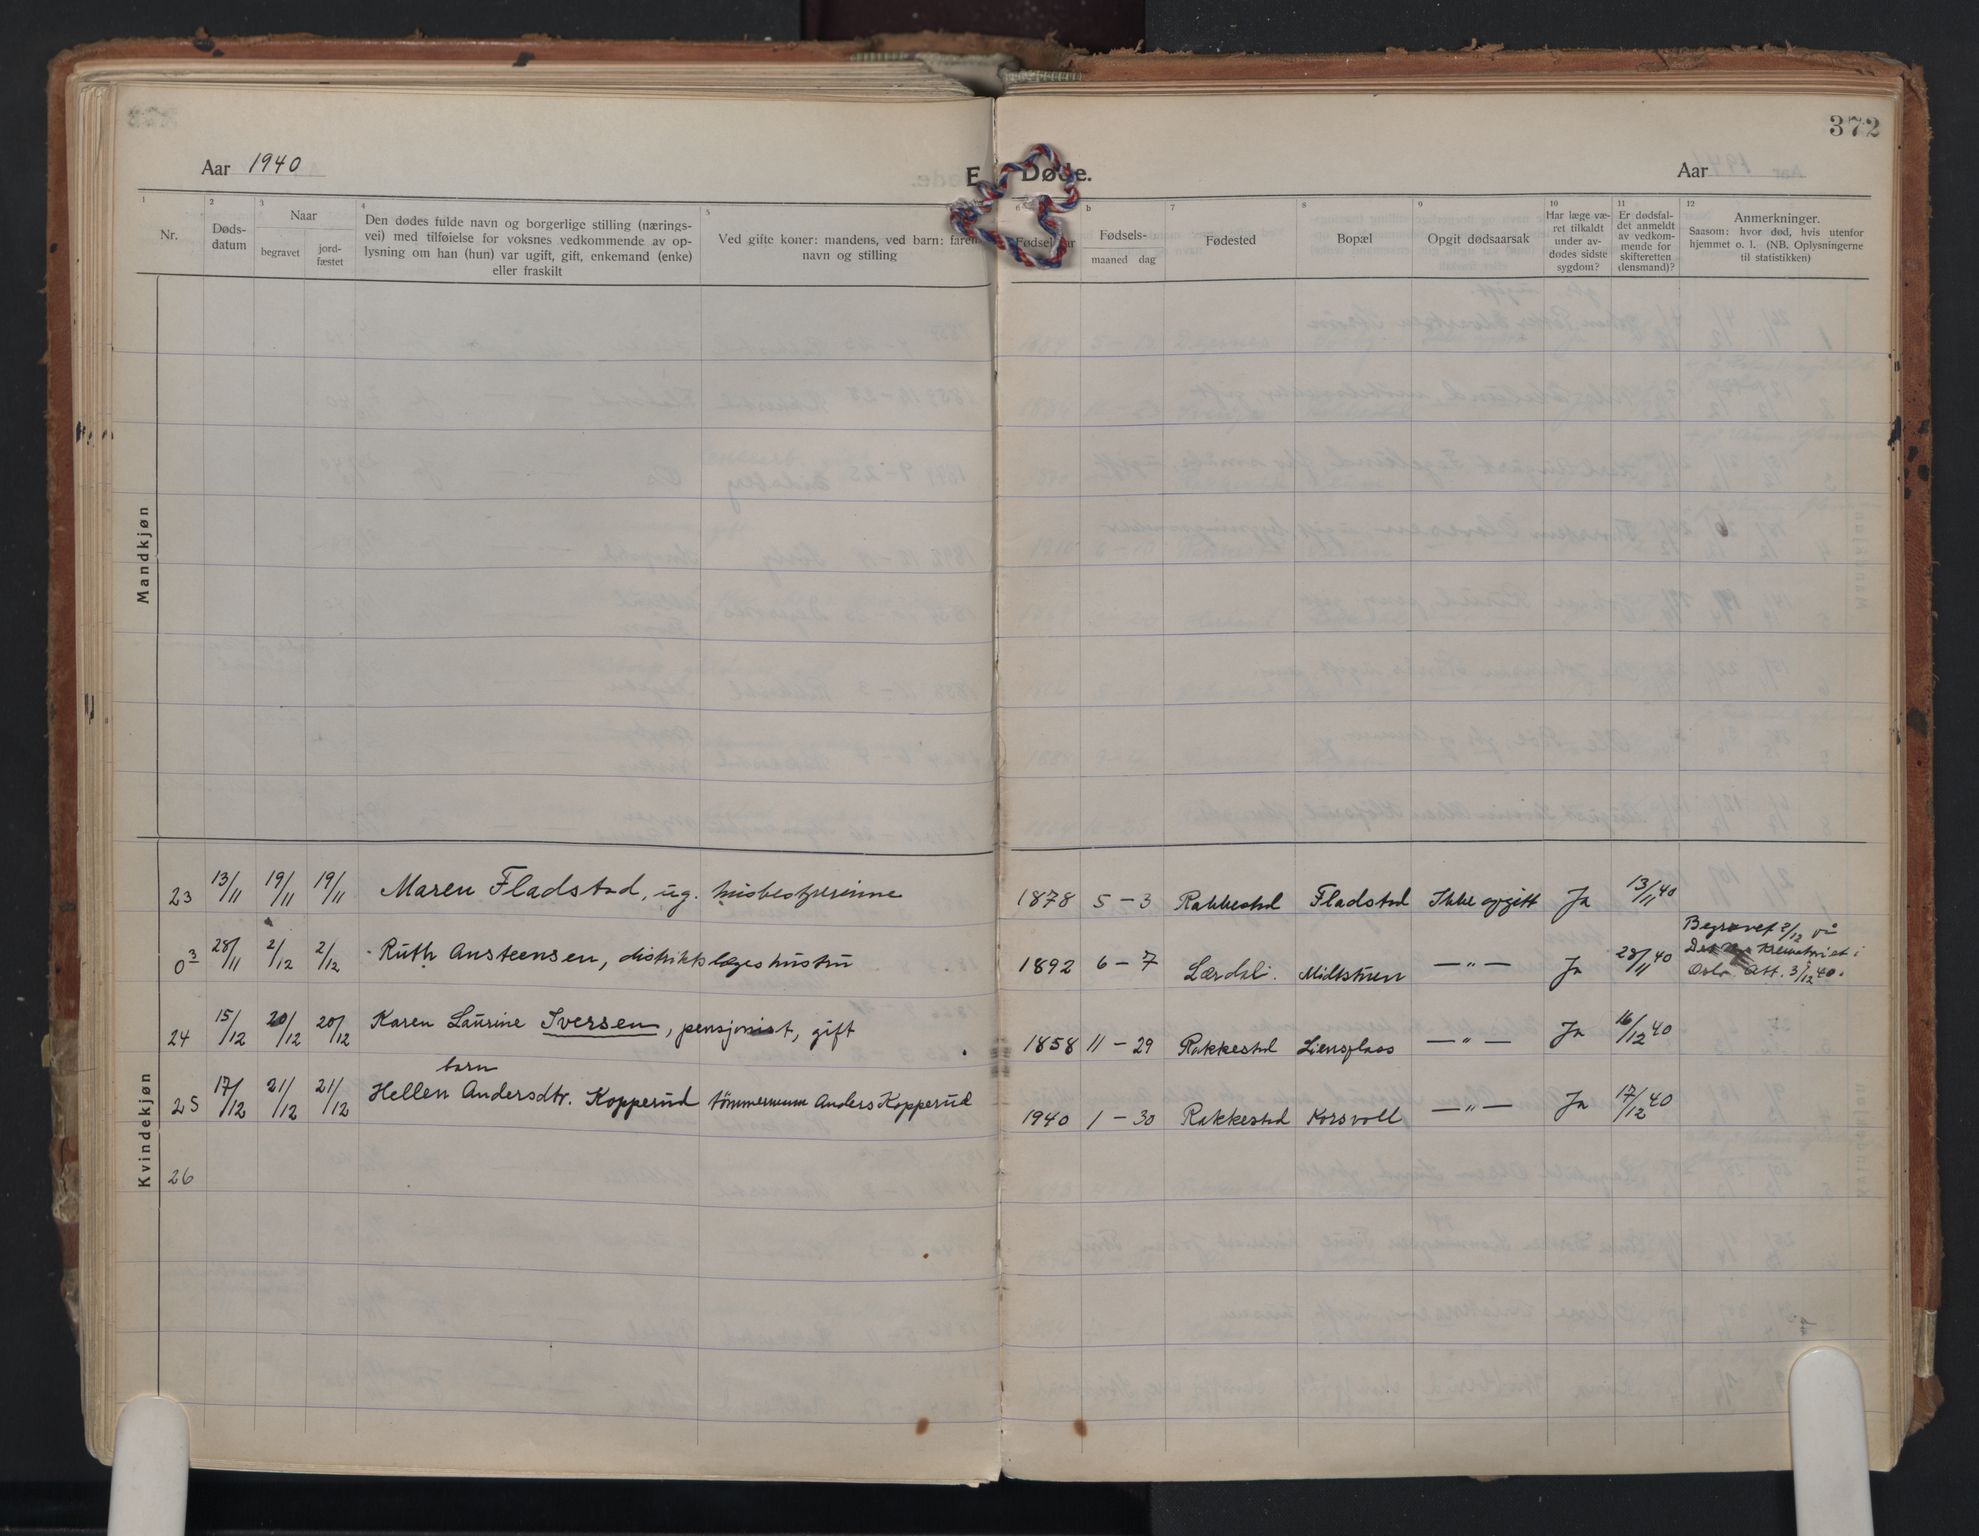 372
Aar 1940
E. Døde.
Aar
1
Nr.
2
Døds-
datum
3
Naar
begravet
jord-
fæstet
4
Den dødes fulde navn og borgerlige stilling (nærings-
vei) med tilføielse for voksnes vedkommende av op-
lysning om han (hun) var ugift, gift, enkemand (enke)
eller fraskilt
5
Ved gifte koner: mandens, ved barn: farens
navn og stilling
6
Fødselsaar
b
Fødsels-
maaned dag
7
Fødested
8
Bopæl
9
Opgit dødsaarsak
10
Har læge væ-
ret tilkaldt
under av-
dødes sidste
sygdom?
11
Er dødsfal-
det anmeldt
av vedkom-
mende for
skifteretten
(lensmand)?
12
Anmerkninger.
Saasom: hvor død, hvis utenfor
hjemmet o. l. (NB. Oplysningerne
til statistikken)
Mandkjøn
Kvindekjøn
23 13/11 19/11 19/11 Maren Fladstad, ug. husbestyrerinne 1878 5 - 3 Rakkestad Fladstad Ikke opgitt Ja 13/11 40
0 3 28/11 2/12 2/12 Ruth Ansteensen, distriktslægeshustru 1892 6 - 7 Lærdal. Midtstuen — " — Ja 28/11 40
Begravet 2/12 på
Det krematoriet i
Oslo Att. 3/12 40.
24 15/12 20/12 20/12 Karen Laurine Iversen, pensjonist, gift 1858 11 - 29 Rakkestad Liensplass — " — Ja 16/12 40
barn
25 17/12 21/12 21/12 Hellen Andersdtr. Kopperud tømmermann Anders Kopperud 1940 1 - 30 Rakkestad Korsvoll — " — Ja 17/12 40
26